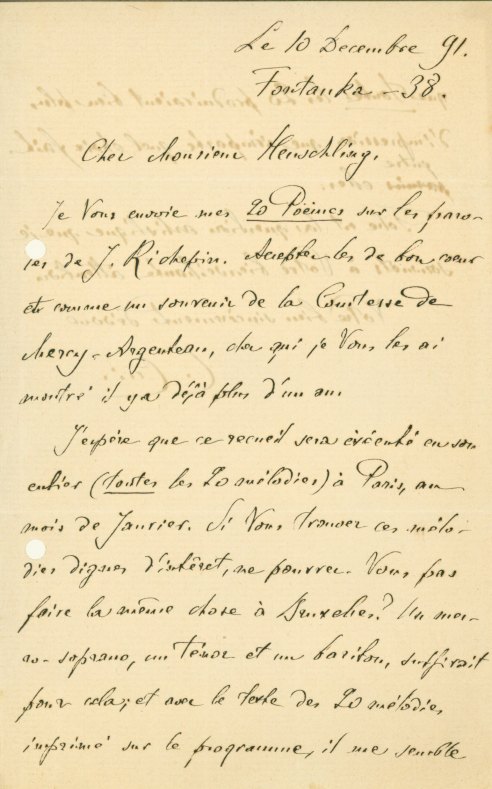 Le 10 Decembre 91.
Fontanka - 38.
Cher Monsieur Heuschling,
Je Vous envoie mes 20 Poëmes sur les paro-
les de J. Richepin. Acceptez les de bon coeur
et comme un souvenir de la Comtesse de
Mercy-Argenteau, chez qui je Vous les ai
montré il y a déjà plus d'un an.
J'espère que ce recueil sera éxécuté en son
entier (toutes les 20 mélodies) à Paris, au
mois de Janvier. Si Vous trouvez ces mélo-
dies dignes d'intêret, ne pourrez-Vous pas
faire la même chose à Bruxelles? Un mez-
zo-soprano, un ténor et un bariton, suffirait
pour cela; et avec le texte des 20 mélodies
imprimé sur le programme, il me semble